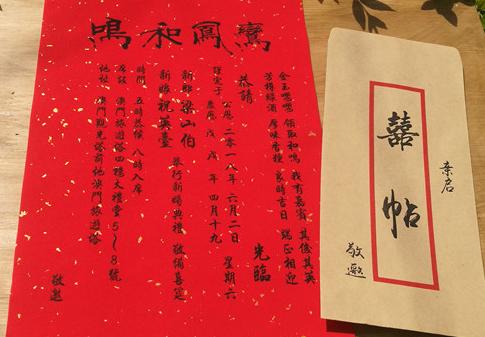 鸞鳳和鳴
金玉喈喈 領取和鳴 我有嘉賓 其俊其英
芳樽綠酒 香 良時吉日 端正相迎
恭請 光臨
謹定于 公曆 二〇一八年六月二日 星期六
農曆 戊戌年 四月十九
新郎 梁山伯
舉行新婚典禮 敬備喜筵
新娘 祝英臺
時間 五時恭候 八時入席
席設 澳門旅遊塔四樓大禮堂5~8號
地址 澳門觀光塔前地澳門旅遊塔
敬邀
启
囍帖
敬邀